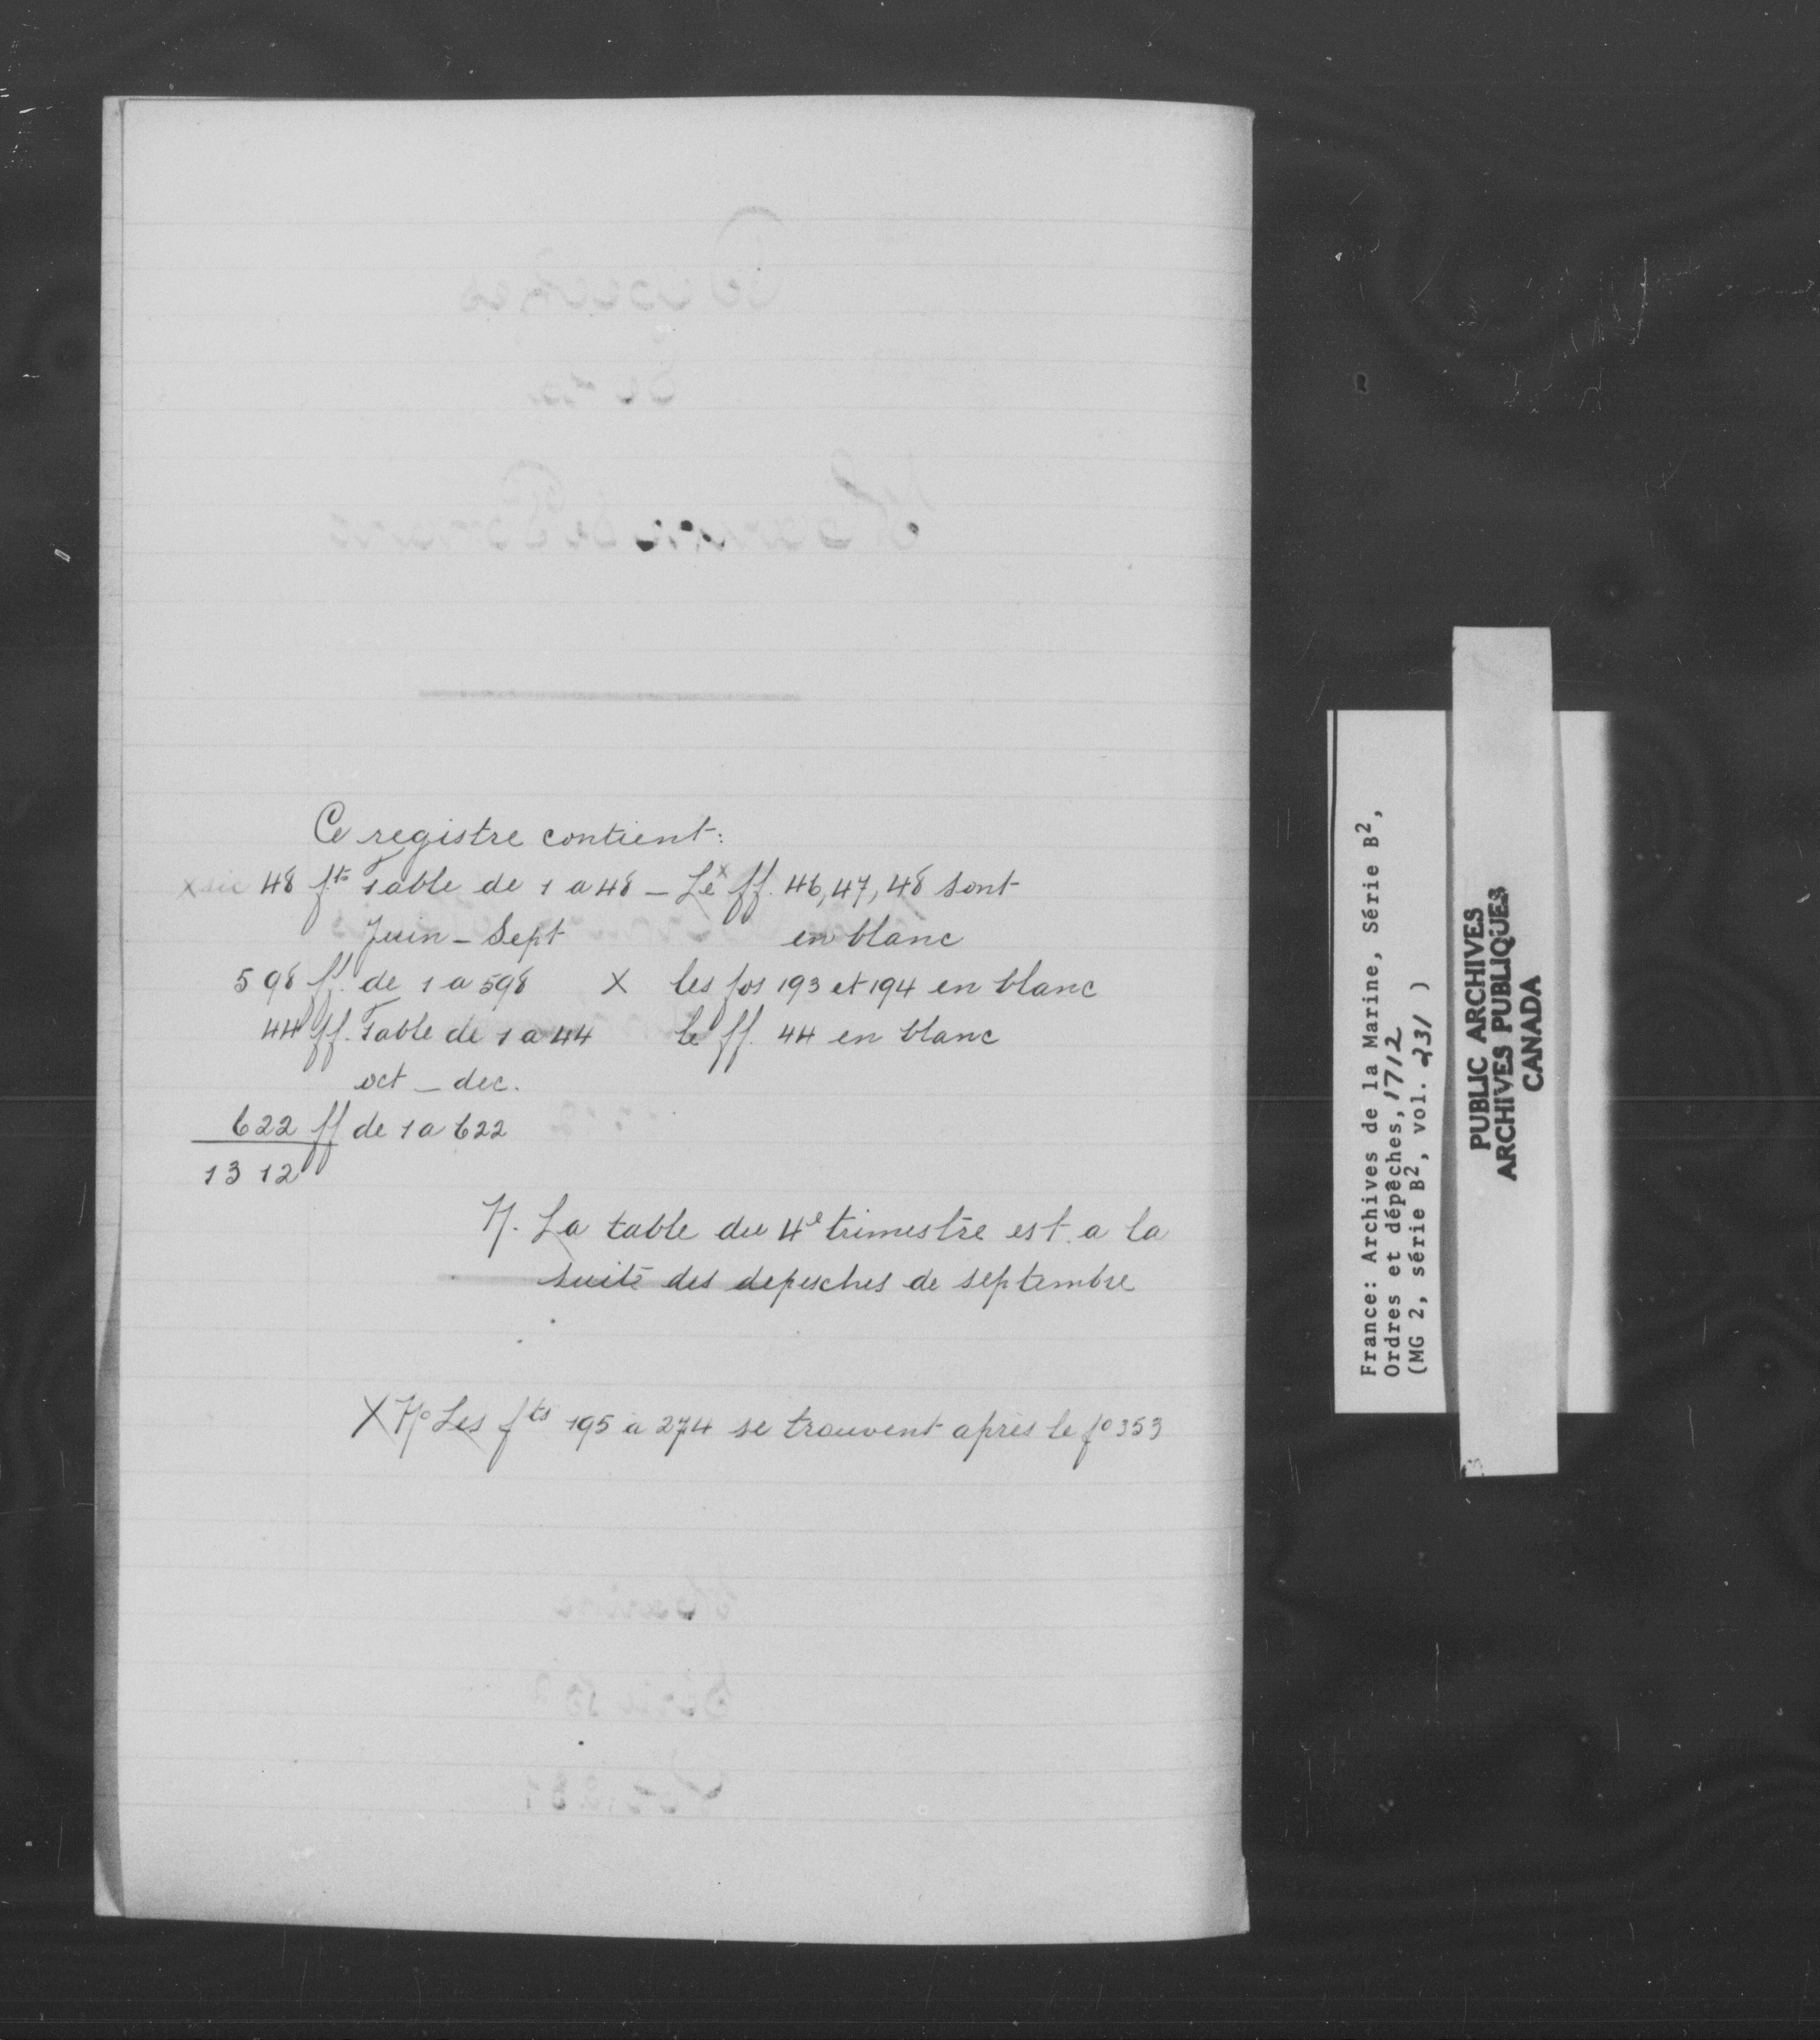 Ce registre contient:
X sic 48 fts Table de 1 a 48 – Le x ff. 46, 47, 48 sont
Juin – Sept en blanc
598 ff. de 1 a 598 X les fos 193 et 194 en blanc
44 ff. Table de 1 a 44 le ff. 44 en blanc
oct – dec.
622 ff de 1 a 622
1312
N. La table du 4e trimestre est a la
suite des depesches de septembre
X No Les fts 195 à 274 se trouvent après le fo 353
France: Archives de la Marine, Série B2,
Ordres et dépêches, 1712
(MG 2, série B2, vol. 231 )
PUBLIC ARCHIVES
ARCHIVES PUBLIQUES
CANADA